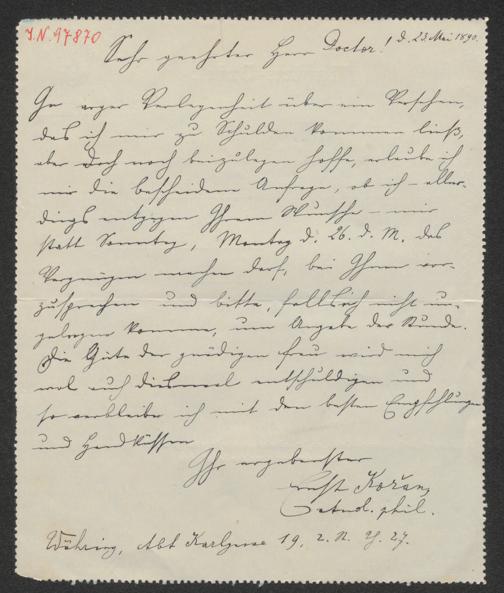 J.N. 97870
d. 23. Mai 1890.
Sehr geehrter Herr Doctor!
In arger Verlegenheit über ein Versehen,
das ich mir zu Schulden kommen ließ,
aber doch noch beizulegen hoffe, erlaube ich
mir die bescheidene Anfrage, ob ich – aller-
dings entgegen Ihrem Wunsche – mir
statt Sonntag, Montag d. 26. d. M. das
Vergnügen machen darf, bei Ihnen vor-
zusprechen und bitte, falls ich nicht un-
gelegen komme, um Angabe der Stunde.
Die Güte der gnädigen Frau wird mich
wol auch diesmal entschuldigen und
so verbleibe ich mit den besten Empfehlungen
und Handküssen
Ihr ergebenster
stud. phil.
Währing, Abt Karlgasse 19, 2. St. Th. 27.